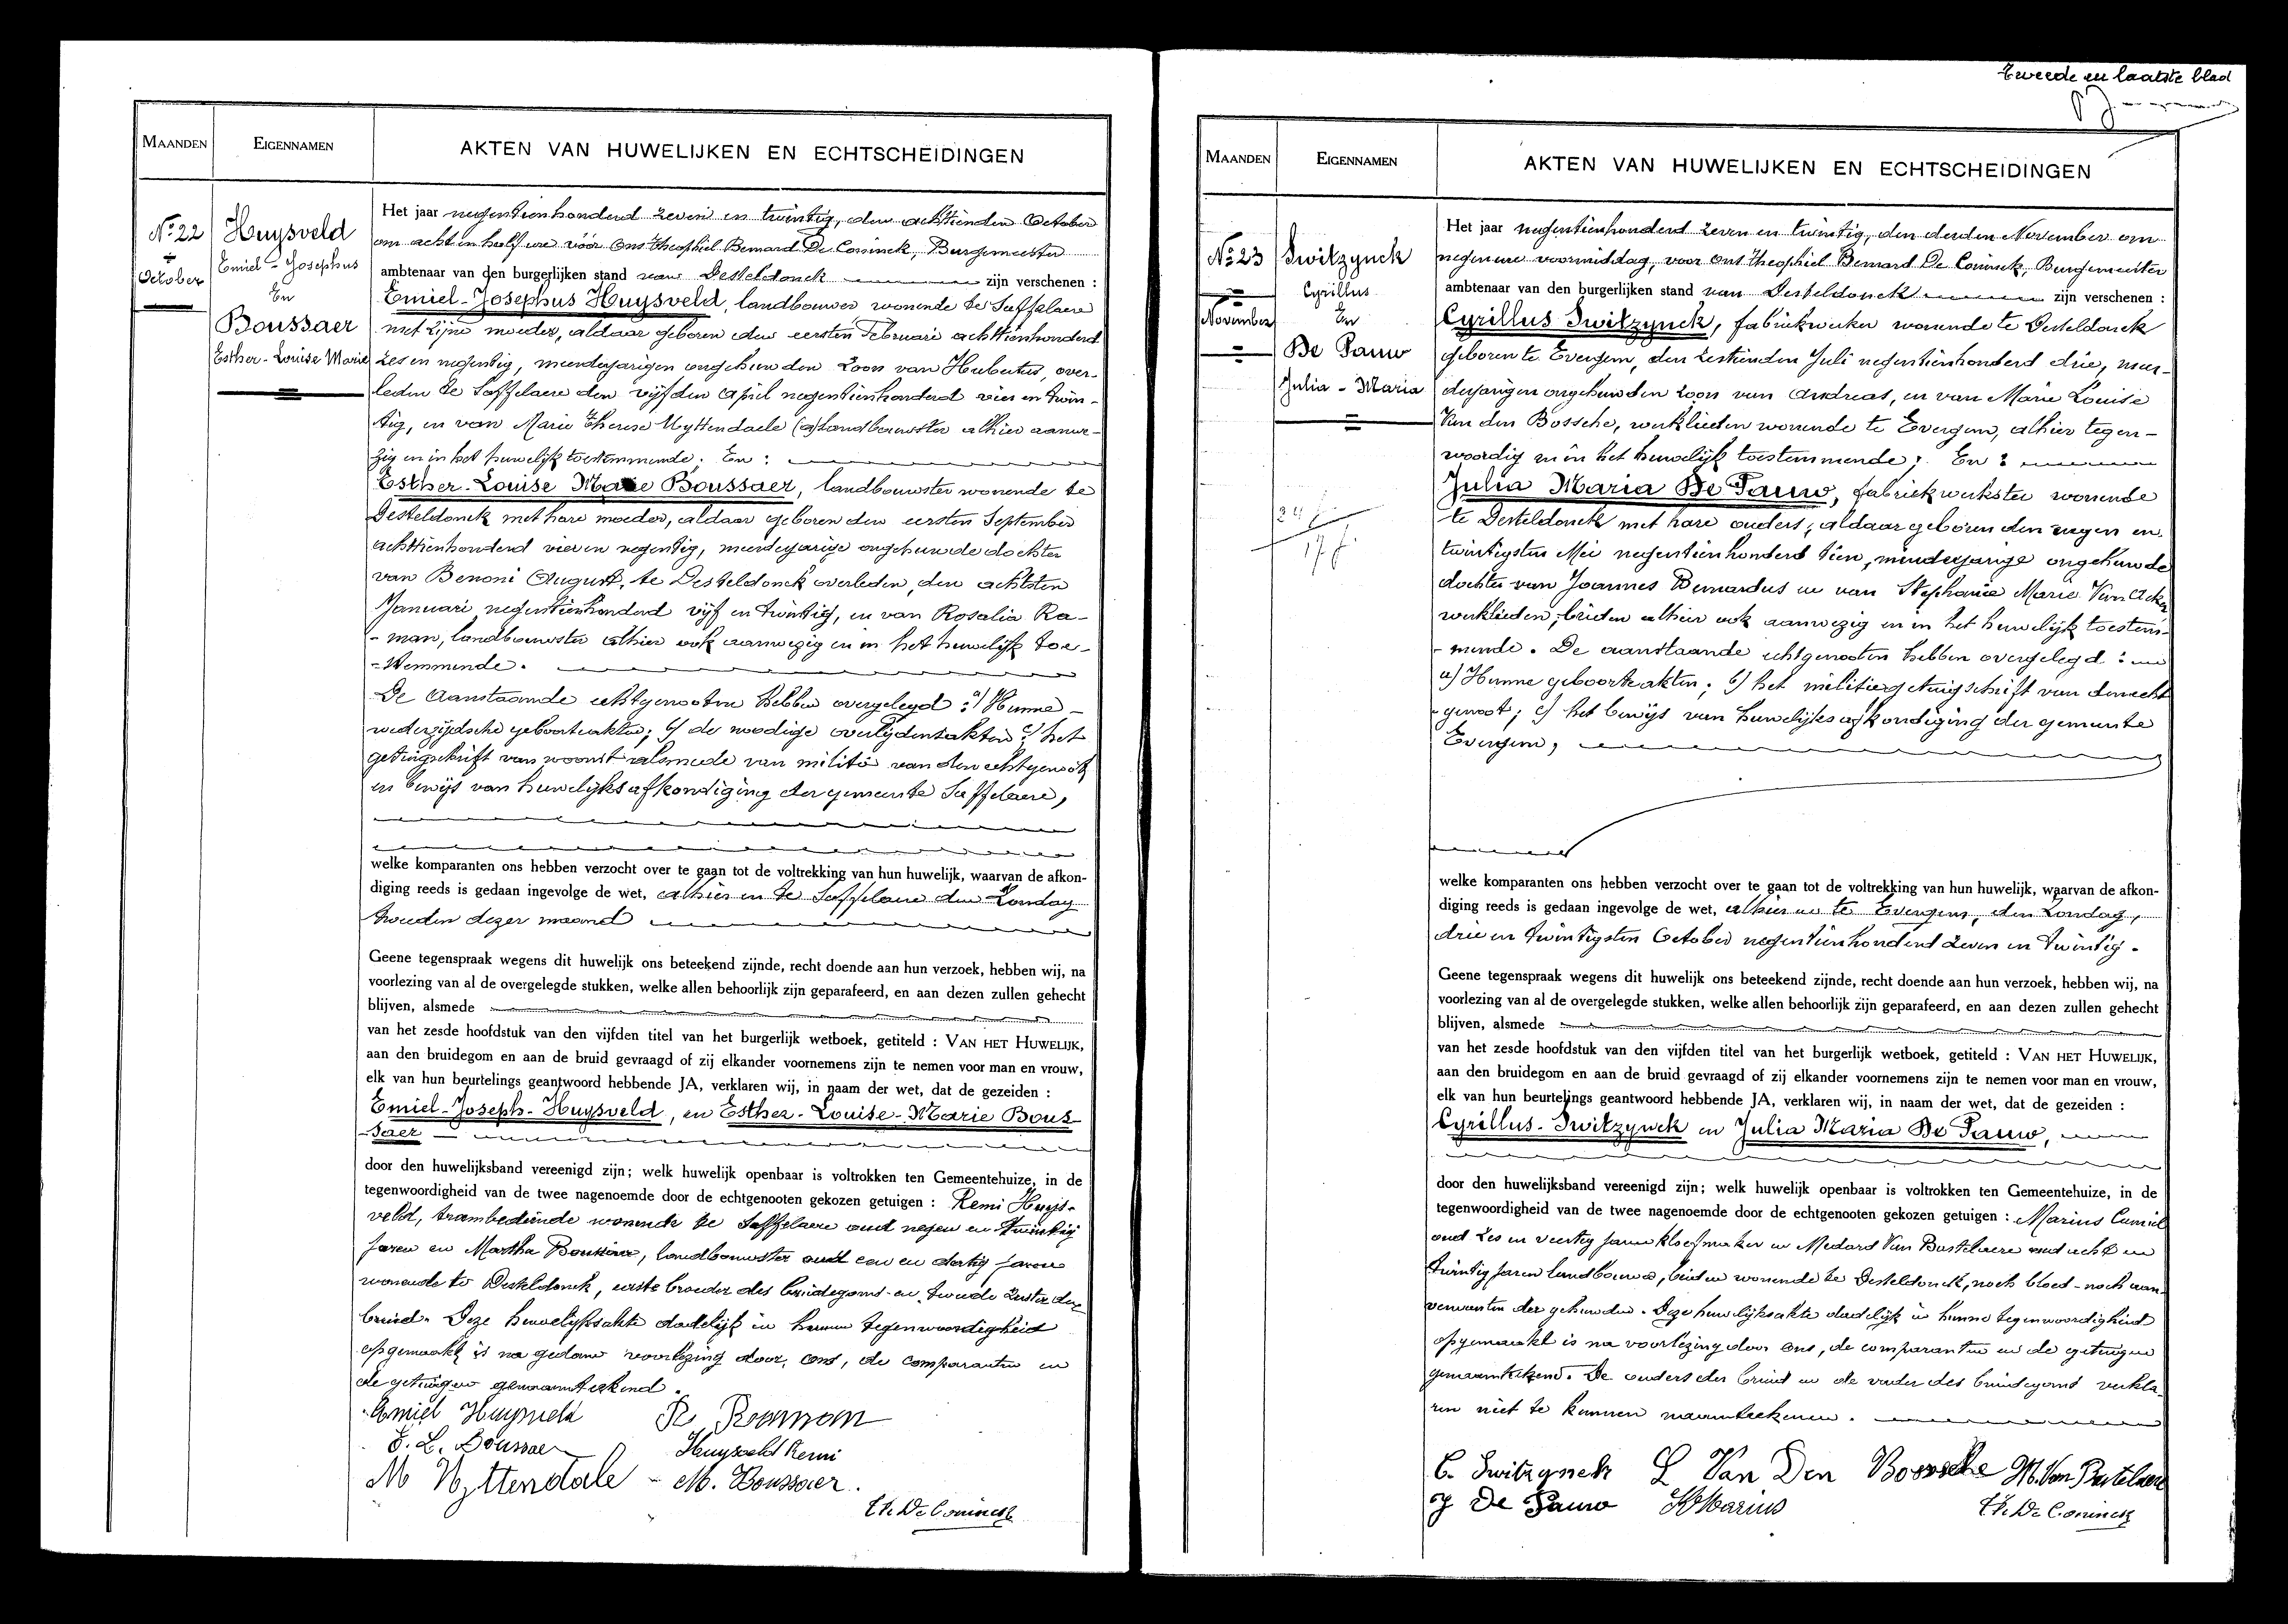 MAANDEN EIGENNAMEN AKTEN VAN HUWELIJKEN EN ECHTSCHEIDINGEN
No. 22
October
Huysveld
Emiel-Josephus
En
Boussaer
Esther-Louise Marie
Het jaar negentienhonderd zeven en twintig, den achttienden October
om acht en half ure vóór ons Theophiel Bernard De Coninck, Burgemeester
ambtenaar van den burgerlijken stand van Desteldonck zijn verschenen :
Emiel-Josephus Huysveld, landbouwer wonende te Saffelaere
met zijne moeder, aldaar geboren den eersten Februari achttienhonderd
zes en negentig, meerderjarigen ongehuwden zoon van Hubertus, over-
leden te Saffelaere den vijfden April negentienhonderd vier en twin-
tig, en van Marie Therese Uyttendaele (a) landbouwster alhier aanwe-
zig en in het huwelijk toestemmende. En :
Esther-Louise Marie Boussaer, landbouwster wonende te
Desteldonck met hare moeder, aldaar geboren den eersten September
achttienhonderd vier en negentig, meerderjarige ongehuwde dochter
van Benoni August, te Desteldonck overleden, den achtsten
Januari negentienhonderd vijf en twintig, en van Rosalia Ra-
-man, landbouwster alhier ook aanwezig en in het huwelijk toe-
-stemmende.
De Aanstaande echtgenooten hebben overgelegd : a) Hunne
wederzijdsche geboorteakten; b) de noodige overlijdensakten c) het
getuigschrift van woonst alsmede van militie van den echtgenoot
en bewijs van huwelijksafkondiging der gemeente Saffelaere,
welke komparanten ons hebben verzocht over te gaan tot de voltrekking van hun huwelijk, waarvan de afkon-
diging reeds is gedaan ingevolge de wet, alhier en te Saffelaere den Zondag
tweeden dezer maand
Geene tegenspraak wegens dit huwelijk ons beteekend zijnde, recht doende aan hun verzoek, hebben wij, na
voorlezing van al de overgelegde stukken, welke allen behoorlijk zijn geparafeerd, en aan dezen zullen gehecht
blijven, alsmede
van het zesde hoofdstuk van den vijfden titel van het burgerlijk wetboek, getiteld : VAN HET HUWELIJK,
aan den bruidegom en aan de bruid gevraagd of zij elkander voornemens zijn te nemen voor man en vrouw,
elk van hun beurtelings geantwoord hebbende JA, verklaren wij, in naam der wet, dat de gezeiden :
Emiel-Joseph-Huysveld, en Esther-Louise-Marie Bous-
saer
door den huwelijksband vereenigd zijn; welk huwelijk openbaar is voltrokken ten Gemeentehuize, in de
tegenwoordigheid van de twee nagenoemde door de echtgenooten gekozen getuigen : Remi Huys-
veld, trambediende wonende te Saffelaere oud negen en twintig
jaren en Martha Boussaer, landbouwster oud een en dertig jaren
wonende te Desteldonck, eerste broeder des bruidegoms en tweede zuster der
bruid. Deze huwelijksakte dadelijk in hunne tegenwoordigheid
opgemaakt is na gedane voorlezing door, ons, de comparanten en
de getuigen genaamteekend.
Emiel Huysveld R. Raman
E. L. Boussaer Huysveld Remi
M Uyttendale - M. Boussaer.
Th. De Coninck
Tweede en laatste blad
MAANDEN EIGENNAMEN AKTEN VAN HUWELIJKEN EN ECHTSCHEIDINGEN
No. 23
November
Switzynck
Cyrillus
En
De Pauw
Julia-Maria
Het jaar negentienhonderd zeven en twintig, den derden November om
negen ure voormiddag, voor ons Theophiel Bernard De Coninck, Burgemeester
ambtenaar van den burgerlijken stand van Desteldonck zijn verschenen :
Cyrillus Switzynck, fabriekwerker wonende te Desteldonck
geboren te Evergem, den zestienden Juli negentienhonderd drie, meer-
derjarigen ongehuwden zoon van Andreas, en van Marie Louise
Van den Bossche, werklieden wonende te Evergem, alhier tegen-
woordig en in het huwelijk toestemmende; En :
Julia Maria De Pauw, fabriekwerkster wonende
te Desteldonck met hare ouders, aldaar geboren den negen en
twintigsten Mei negentienhonderd tien, minderjarige ongehuwde
dochter van Joannes Bernardus en van Stephanie Marie Van Acker
werklieden, beiden alhier ook aanwezig en in het huwelijk toestem-
-mende. De aanstaande echtgenooten hebben overgelegd :
a) Hunne geboorteakten; b) het militiegetuigschrift van den echt
-genoot; c) het bewijs van huwelijksafkondiging der gemeente
Evergem,
welke komparanten ons hebben verzocht over te gaan tot de voltrekking van hun huwelijk, waarvan de afkon-
diging reeds is gedaan ingevolge de wet, alhier en te Evergem, den Zondag,
drie en twintigsten October negentienhonderd zeven en twintig.
Geene tegenspraak wegens dit huwelijk ons beteekend zijnde, recht doende aan hun verzoek, hebben wij, na
voorlezing van al de overgelegde stukken, welke allen behoorlijk zijn geparafeerd, en aan dezen zullen gehecht
blijven, alsmede
van het zesde hoofdstuk van den vijfden titel van het burgerlijk wetboek, getiteld : VAN HET HUWELIJK,
aan den bruidegom en aan de bruid gevraagd of zij elkander voornemens zijn te nemen voor man en vrouw,
elk van hun beurtelings geantwoord hebbende JA, verklaren wij, in naam der wet, dat de gezeiden :
Cyrillus-Switzynck en Julia Maria De Pauw,
door den huwelijksband vereenigd zijn; welk huwelijk openbaar is voltrokken ten Gemeentehuize, in de
tegenwoordigheid van de twee nagenoemde door de echtgenooten gekozen getuigen : Marius Camiel
oud zes en veertig jaren kloefmaker en Medard Van Bastelaere oud acht en
twintig jaren landbouwer, beiden wonende te Desteldonck, noch bloed- noch aan-
verwanten der gehuwden. Deze huwelijksakte dadelijk in hunne tegenwoordigheid
opgemaakt is na voorlezing door ons, de comparanten en de getuigen
genaamteekend. De ouders der bruid en de vader des bruidegoms verkla-
ren niet te kunnen naamteekenen.
C. Switzynck L Van Den Bossche M. Van Bastelaere
J De Pauw Marius
Th. De Coninck